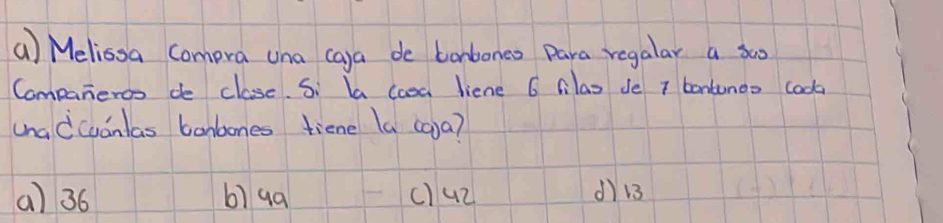 a) Melissa compra una caja de bonbones para regalar a sus
Compañeros de clase. Si la caja tiene 6 filas de 7 bonbones cada
una ¿Cuántas bonbones tiene la caja?
a) 36 b) 49 c) 42 d) 13